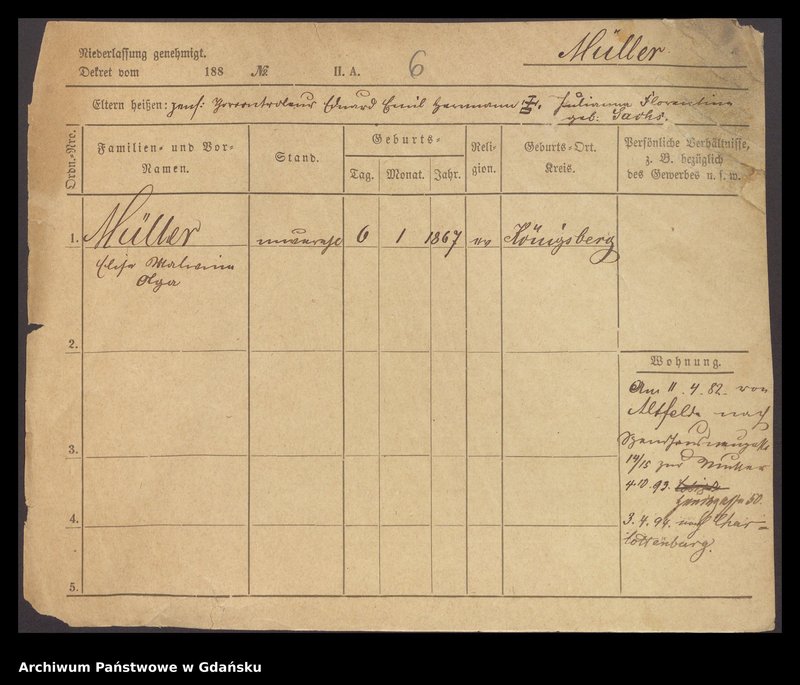 Müller
Niederlassung genehmigt.
Dekret vom 188 No. II. A. 6
Eltern heißen: Eduard Emil Hermann Julianna Florentine
geb. Sachs.
Ordn.-Nro.
Familien- und Vor-
Namen.
Stand.
Geburts-
Tag. Monat. Jahr.
Reli-
gion.
Geburts-Ort.
Kreis.
Persönliche Verhältnisse,
z. B. bezüglich
des Gewerbes u. s. w.
1. Müller unverehl 6 1 1867 ev Königsberg
Elise Malwine
Olga
2.
3.
4.
5.
Wohnung.
Am 11.4.82. von
Altfelde nach
14/15 zur Mutter
4.10.93.
50.
3.4.94. nach Char=
lottenburg.
Archiwum Państwowe w Gdańsku